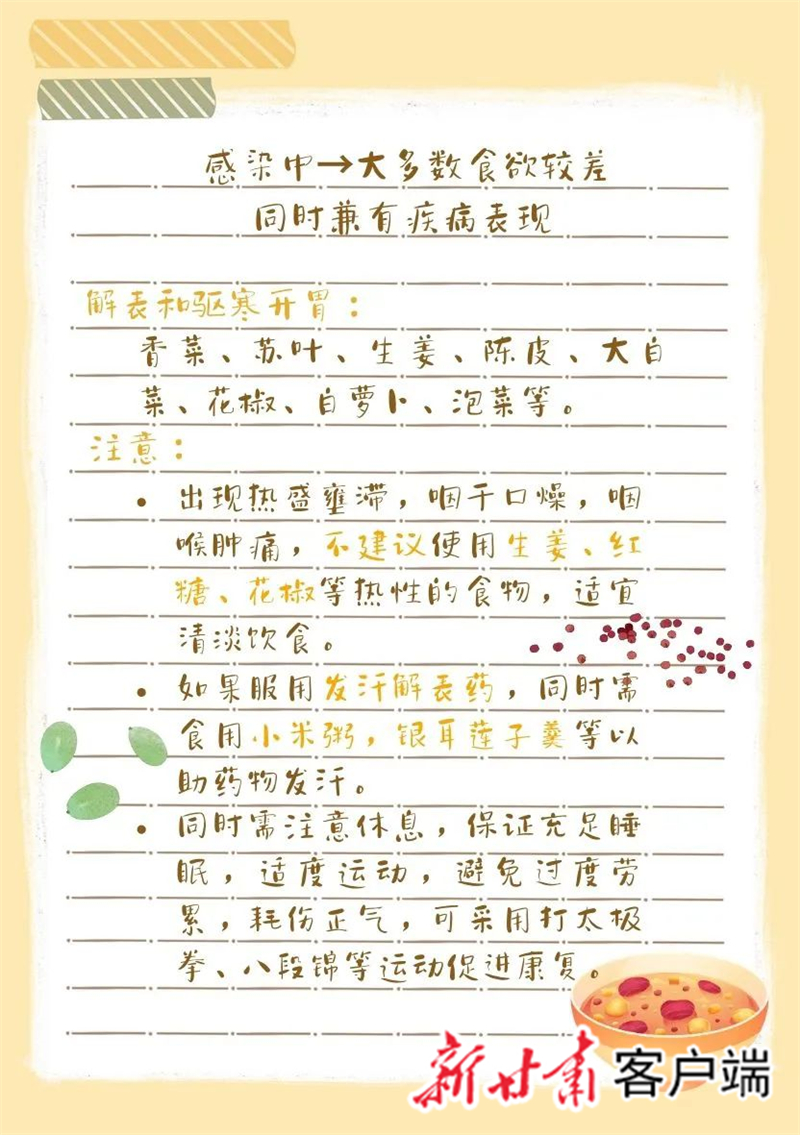 感染中→大多数食欲较差
同时兼有疾病表现
解表和驱寒开胃：
香菜、苏叶、生姜、陈皮、大白
菜、花椒、白萝卜、泡菜等。
注意：
• 出现热盛壅滞，咽干口燥，咽
喉肿痛，不建议使用生姜、红
糖、花椒等热性的食物，适宜
清淡饮食。
• 如果服用发汗解表药，同时需
食用小米粥，银耳莲子羹等以
助药物发汗。
• 同时需注意休息，保证充足睡
眠，适度运动，避免过度劳
累，耗伤正气，可采用打太极
拳、八段锦等运动促进康复。
新甘肃客户端